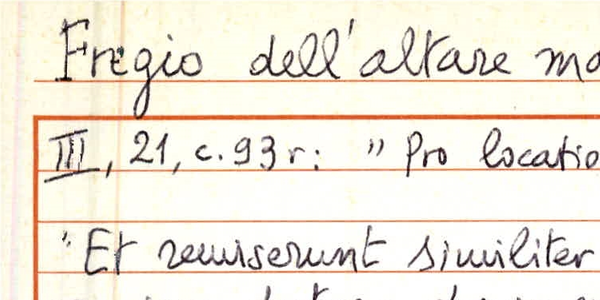 Fregio dell'altare ma
III, 21, c. 93 r: " Pro locatio
"Et remiserunt similiter